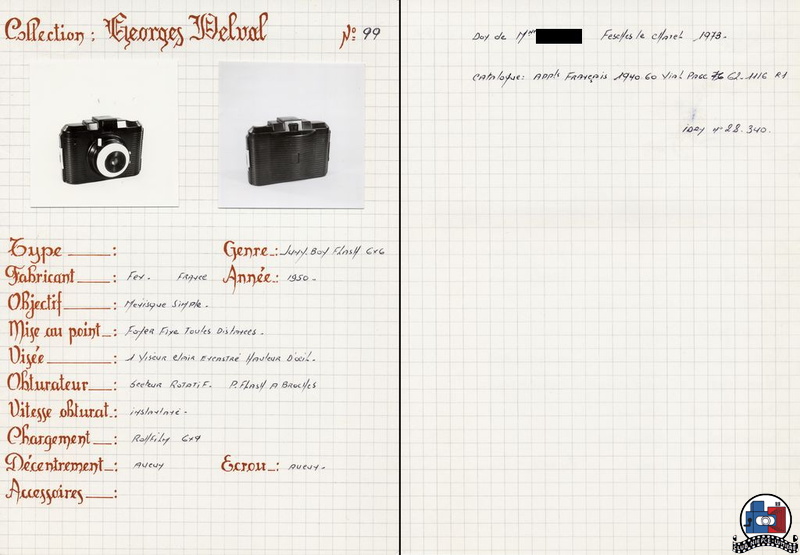 Collection : Georges Delval Nº 99
Type : Genre : Juny. Boy Flash 6x6
Fabricant : Fex. France Année : 1950.
Objectif : Menisque Simple.
Mise au point : Foyer Fixe Toutes Distances.
Visée : 1 Viseur Clair Encastré Hauteur D'oeil.
Obturateur : Secteur Rotatif. P. Flash A Broches
Vitesse obturat. : instantané.
Chargement : Rollfilm 6x9
Décentrement : Aucun Ecrou : Aucun.
Accessoires :
Don de Mme le 1978.
Catalogue : APPls Français 1940.60 Vial Page G2-1116 R1
idem nº 28.340.